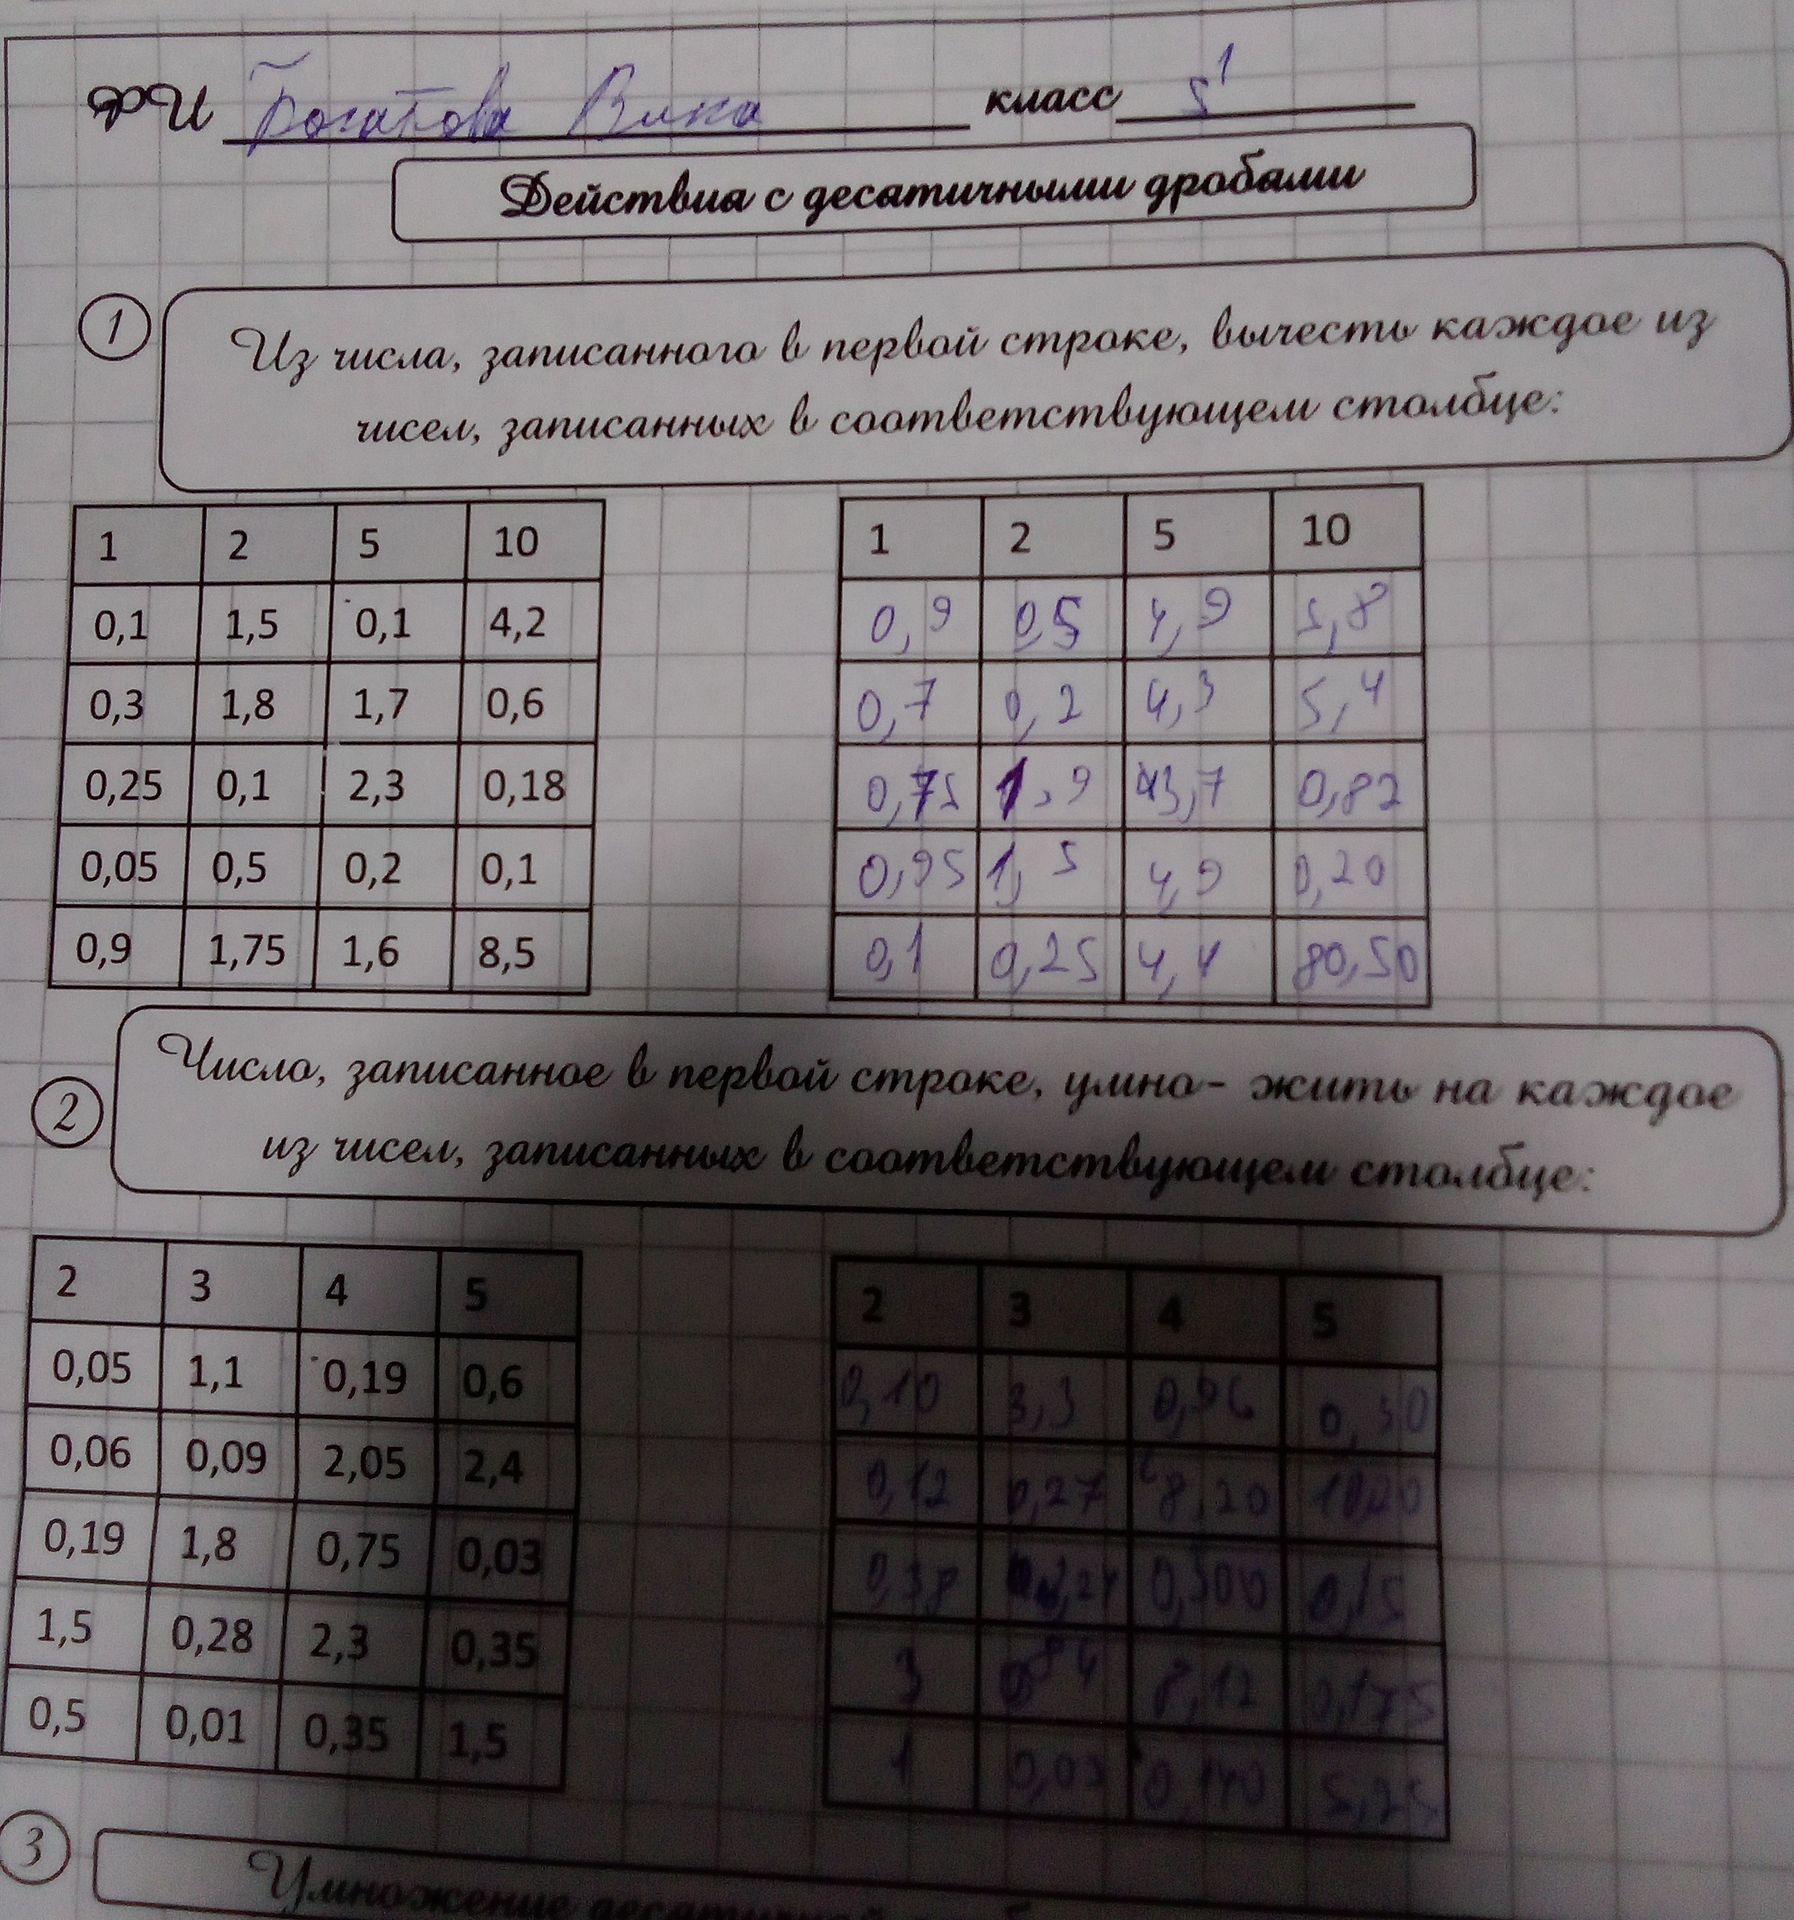 ФИ Богатова Вика класс 5¹
Действия с десятичными дробями
1
Из числа, записанного в первой строке, вычесть каждое из
чисел, записанных в соответствующем столбце:
1 2 5 10 1 2 5 10
0,1 1,5 0,1 4,2 0,9 0,5 4,9 5,8
0,3 1,8 1,7 0,6 0,7 0,2 4,3 5,4
0,25 0,1 2,3 0,18 0,75 1,9 3,7 0,82
0,05 0,5 0,2 0,1 0,95 1,5 4,9 0,20
0,9 1,75 1,6 8,5 0,1 0,25 4,4 80,50
2
Число, записанное в первой строке, умно- жить на каждое
из чисел, записанных в соответствующем столбце:
2 3 4 5 2 3 4 5
0,05 1,1 0,19 0,6 0,10 3,3 0,96 0,30
0,06 0,09 2,05 2,4 0,12 0,27 8,20
0,19 1,8 0,75 0,03 0,38 0,300 0,15
1,5 0,28 2,3 0,35 3 0,84 8,12 0,175
0,5 0,01 0,35 1,5 1 0,03 0,140 5,25
3
Умножение